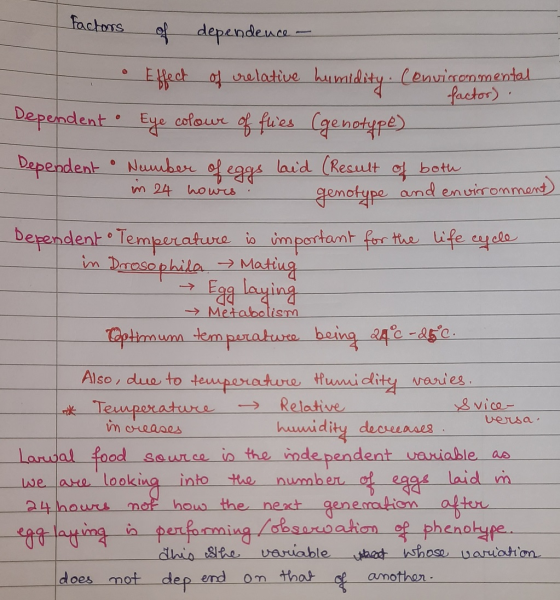 Factors of dependence —
• Effect of relative humidity. (environmental
factor).
Dependent • Eye colour of flies (genotype)
Dependent • Number of eggs laid (Result of both
in 24 hours. genotype and environment)
Dependent • Temperature is important for the life cycle
in Drosophila → Mating
→ Egg laying
→ Metabolism
Optimum temperature being 24°C - 25°C.
Also, due to temperature Humidity varies.
* Temperature → Relative & vice-
increases humidity decreases. versa.
Larval food source is the independent variable as
we are looking into the number of eggs laid in
24 hours not how the next generation after
egg laying is performing/observation of phenotype.
This is the variable whose variation
does not depend on that of another.